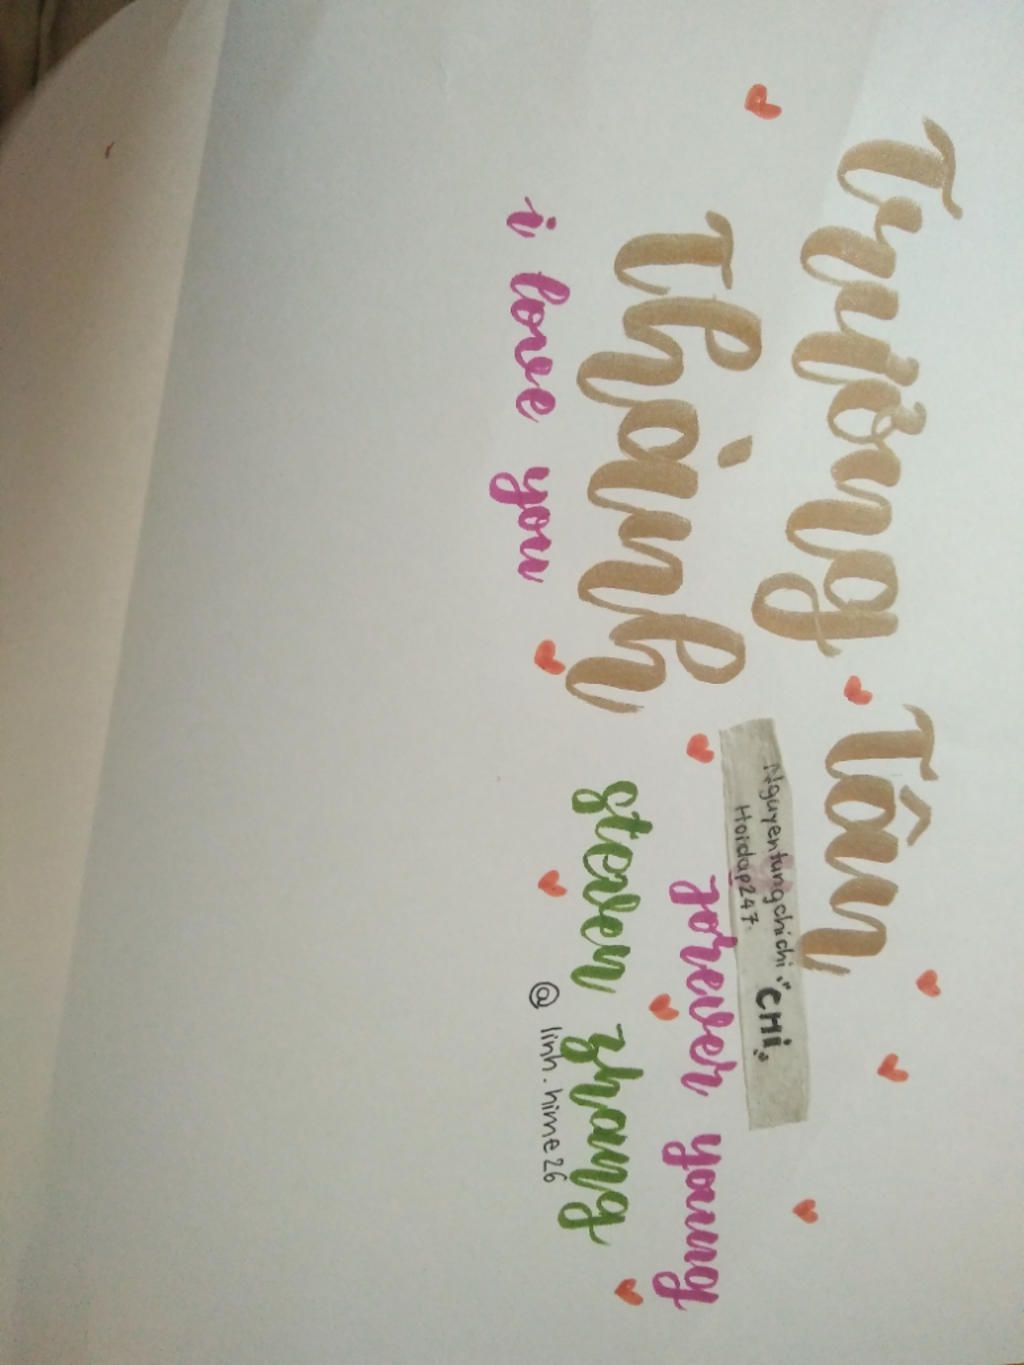 Trương Tân
Thành
i love you
Nguyentungchichi "CHi"
Hoidap247.
forever young
steven zhang
@ linh.hime26